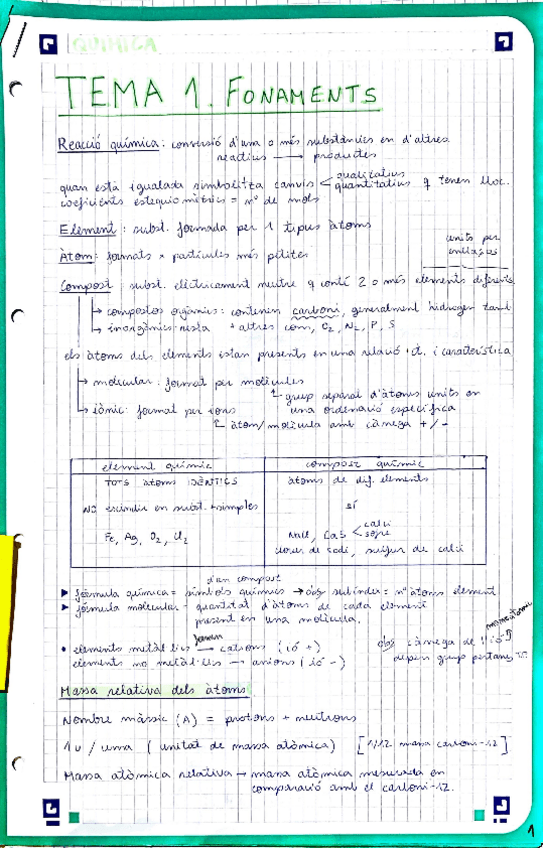 QUÍMICA
TEMA 1. FONAMENTS
Reacció química: conversió d'una o més substàncies en d'altres.
reactius → productes
quan està igualada simbolitza canvis < qualitatius quantitatius q tenen lloc.
coeficients estequiomètrics = nº de mols
Element: subst. formada per 1 tipus àtoms
Àtom: formats x partícules més petites
units per enllaços
Compost: subst. elèctricament neutre q conté 2 o més elements diferents.
↳ compostos orgànics: contenen carboni, generalment hidrogen també
↳ inorgànics: resta + altres com, O2, N2, P, S
els àtoms dels elements estan presents en una relació ct. i característica
↳ molecular: format per molècules
↳ grup separat d'àtoms units en una ordenació específica
↳ iònic: format per ions
↳ àtom/molècula amb càrrega + / -
element químic | compost químic
TOTS àtoms IDÈNTICS | àtoms de dif. elements
NO escindir en subst. + simples | sí
Fe, Ag, O2, Cl2 | NaCl, CaS < calci sofre
clorur de sodi, sulfur de calci
d'un compost
▶ fórmula química = símbols químics → subíndex = nº àtoms element
▶ fórmula molecular = quantitat d'àtoms de cada element
present en una molècula.
• elements metàl·lics → formen cations (ió +)
elements no metàl·lics → anions (ió -)
monoatòmic
càrrega de l'ió
depèn grup pertany
Massa relativa dels àtoms
Nombre màssic (A) = protons + neutrons
1u / uma (unitat de massa atòmica) [1/12 massa carboni-12]
Massa atòmica relativa → massa atòmica mesurada en
comparació amb el carboni-12.
1